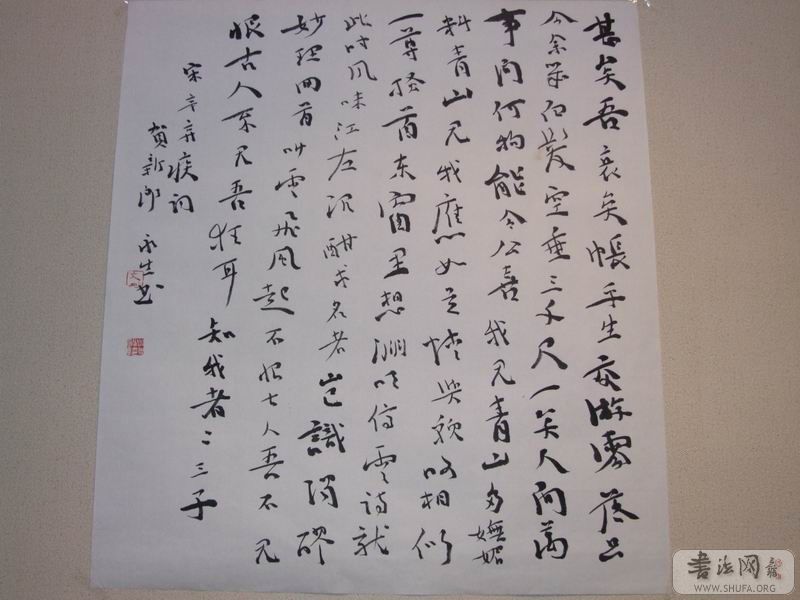 甚矣吾衰矣悵平生交游零落只
今余幾白髮空垂三千尺一笑人间萬
事问何物能令公喜我见青山多嫵媚
料青山见我應如是情與貌略相似
一尊搔首东窗里想渊明停雲詩就
此时风味江左沉酣求名者岂識濁醪
妙理回首叫雲飛风起不恨古人吾不见
恨古人不见吾狂耳知我者二三子
宋辛弃疾词
贺新郎 永生书
书法网
WWW.SHUFA.ORG